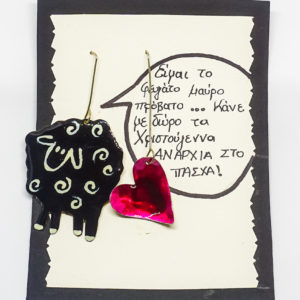 Είμαι το
φευγάτο μαύρο
πρόβατο ... κάνε
με δώρο τα
Χριστούγεννα
ΑΝΑΡΧΙΑ ΣΤΟ
ΠΑΣΧΑ!